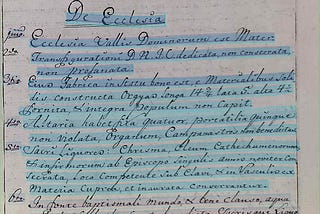 De Ecclesia
1mo Ecclesia Vallis Dominorum est Mater
2do Transfigurationi D. N. J. C. dedicata, non consecrata,
non Profanata.
3tio Ejus Fabrica in statu bono est, e Materialibus soli
dis constructa Orgyas longa 14 lata 5 alta 4
Fornita, & integra Populum non Capit.
4to Altaria habet fixa Quatuor, portatilia Quinque
non violata
5to Sacri Liquores: Chrisma, Oleum Cathecumenorum
& Infirmorum ab Episcopo singulis annis noviter Con
secrata, loco Competente sub Clavi, & in Vasculis ex
Materia Cuprea, et inaurata conservantur.
6to In fonte baptismali mundo, & bene Clauso, aqua